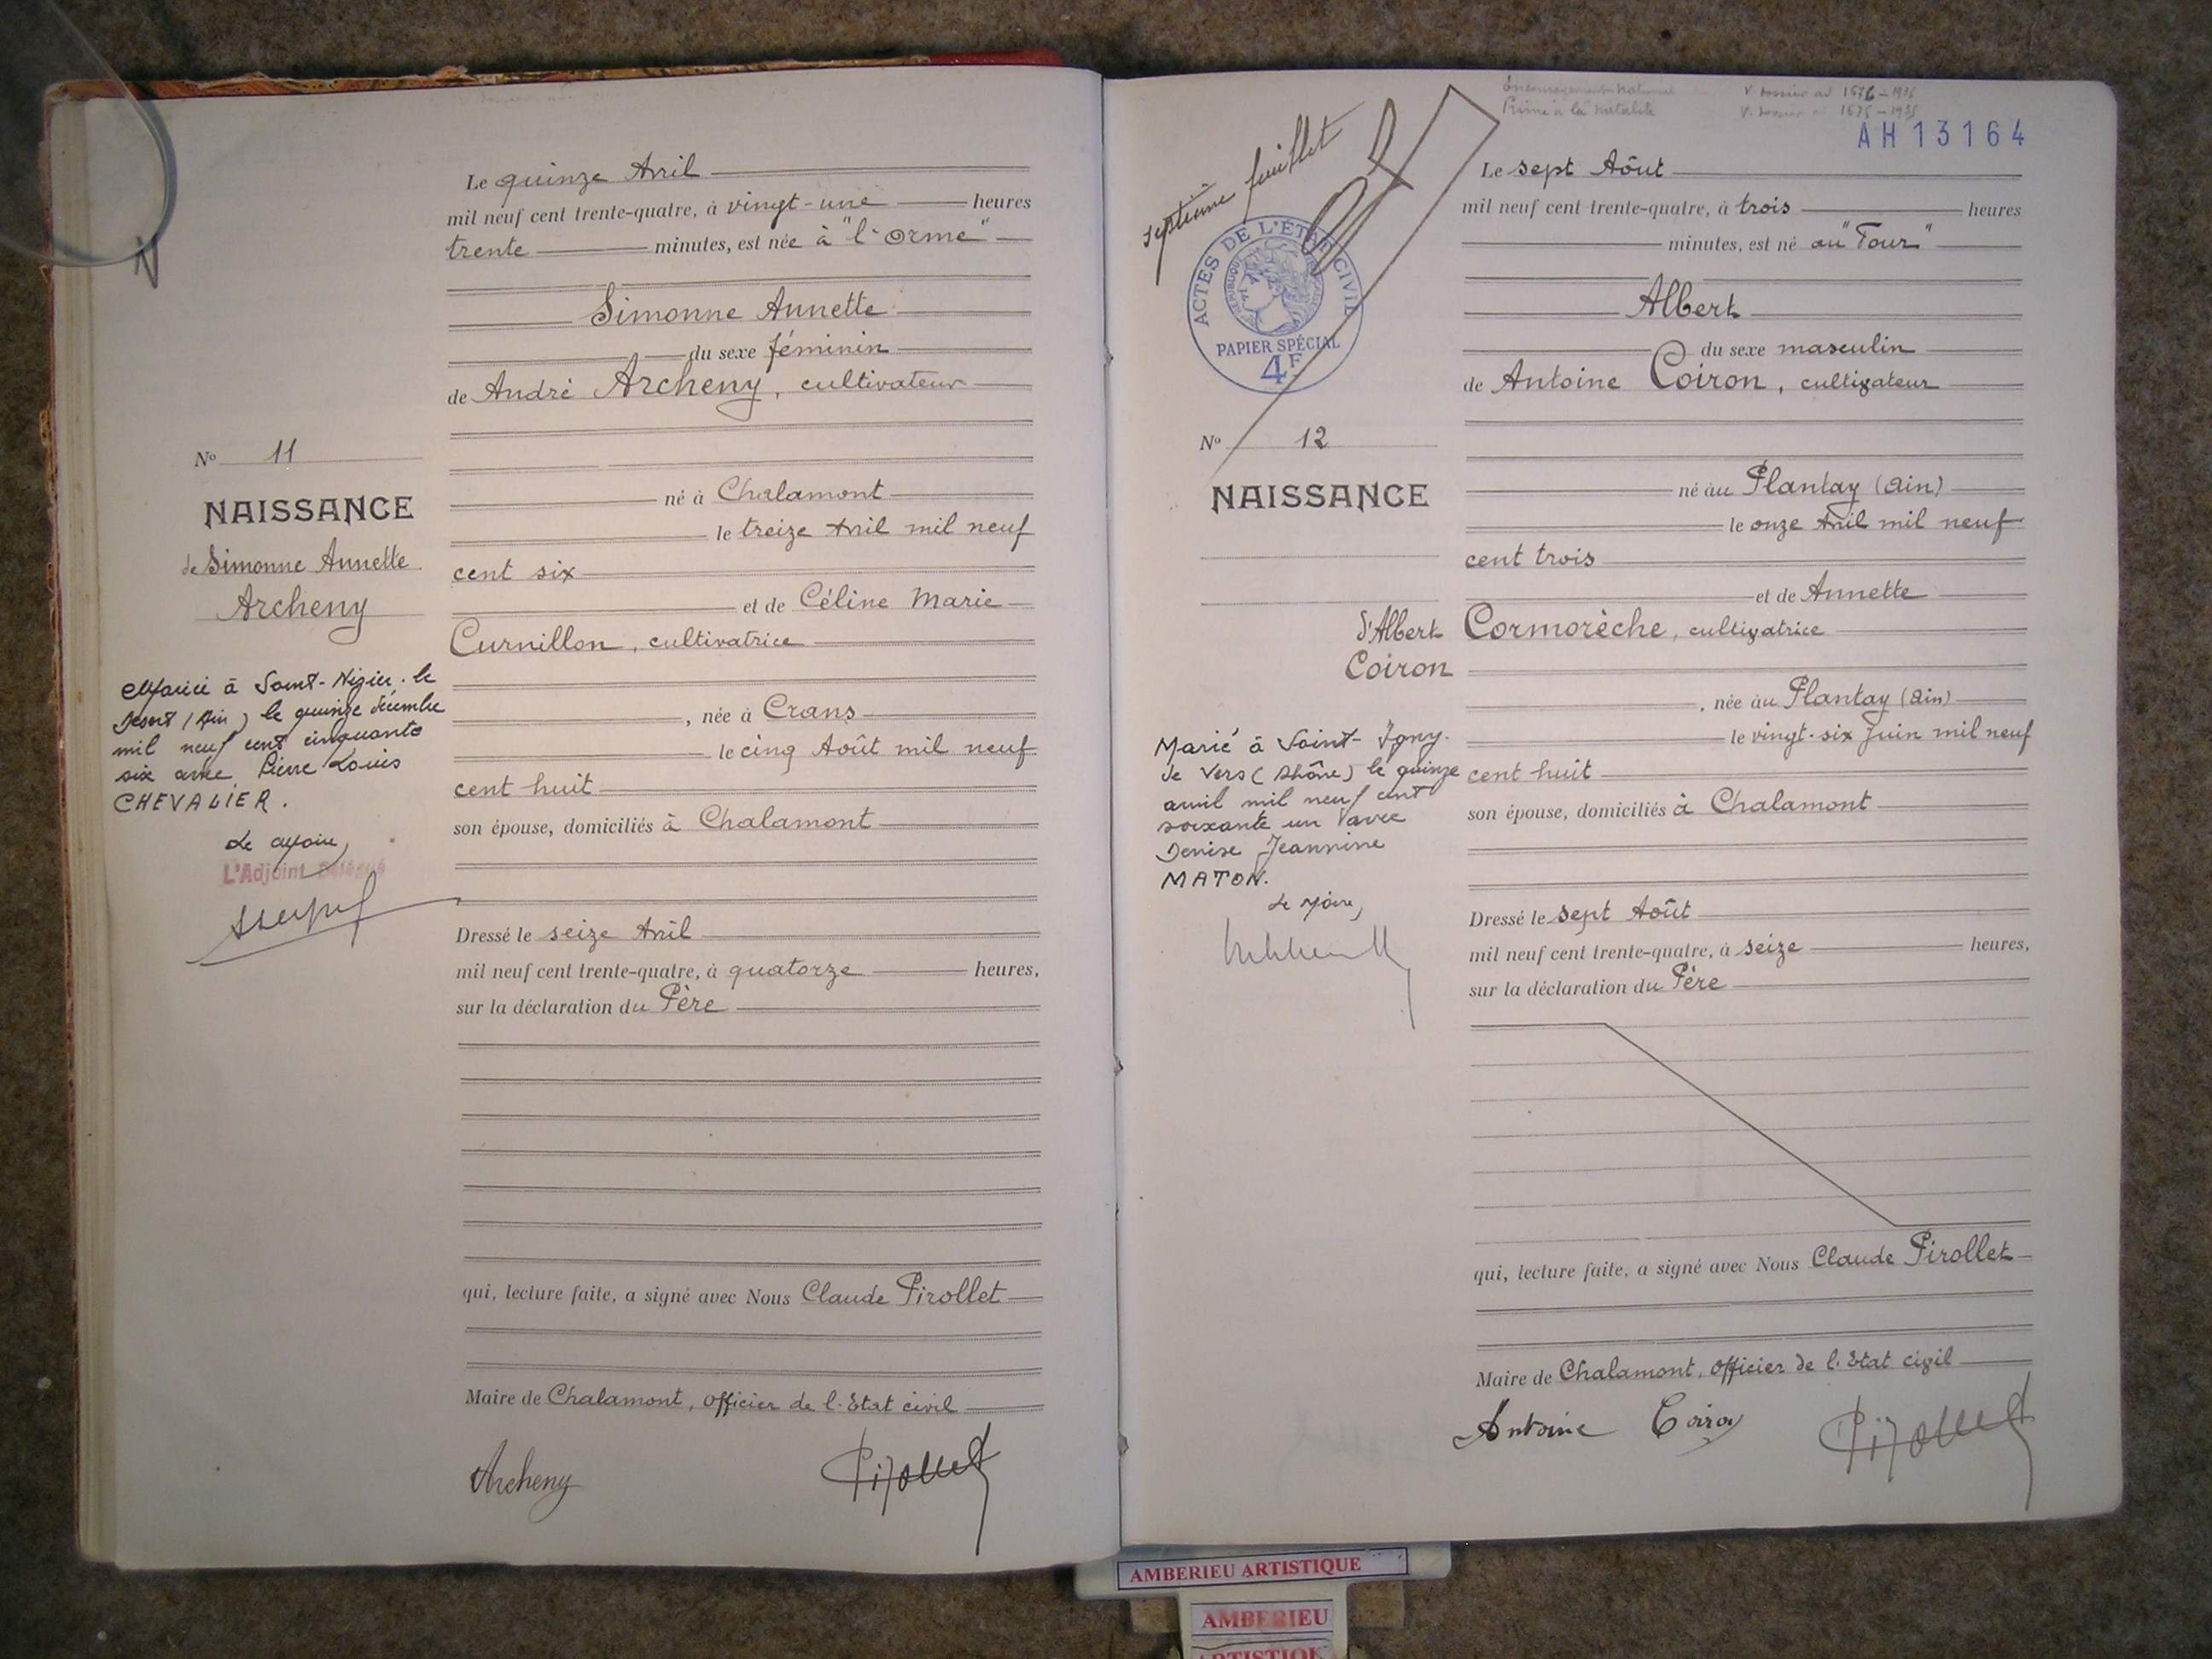 Le quinze Avril
mil neuf cent trente-quatre, à vingt-une heures
trente minutes, est née à "l'Orme"
Simonne Annette
du sexe féminin
de André Archeny, cultivateur
né à Chalamont
le treize Avril mil neuf
cent six
et de Céline Marie
Curnillon, cultivatrice
, née à Crans
le cinq Août mil neuf
cent huit
son épouse, domiciliés à Chalamont
Dressé le seize Avril
mil neuf cent trente-quatre, à quatorze heures,
sur la déclaration du Père
qui, lecture faite, a signé avec Nous Claude Pirollet
Maire de Chalamont, officier de l'Etat civil
Archeny Pirollet
N° 11
NAISSANCE
de Simonne Annette
Archeny
Mariée à Saint-Nizier-le
Désert (Ain) le quinze décembre
mil neuf cent cinquante
six avec Pierre Louis
CHEVALIER.
Le Maire,
L'Adjoint Délégué
septième feuillet
ACTES DE L'ÉTAT CIVIL
RÉPUBLIQUE FRANÇAISE
PAPIER SPÉCIAL
4F
N° 12
NAISSANCE
d'Albert
Coiron
Marié à Saint-Igny-
de Vers (Rhône) le quinze
avril mil neuf cent
soixante un avec
Denise Jeannine
MATON.
Le Maire,
Encouragement National V. dossier 1676-1935
Prime à la Natalité V. dossier 1675-1935
AH13164
Le sept Aôut
mil neuf cent trente-quatre, à trois heures
minutes, est né au "Tour"
Albert
du sexe masculin
de Antoine Coiron, cultivateur
né au Plantay (Ain)
le onze Avril mil neuf
cent trois
et de Annette
Cormorèche, cultivatrice
, née au Plantay (Ain)
le vingt-six Juin mil neuf
cent huit
son épouse, domiciliés à Chalamont
Dressé le sept Août
mil neuf cent trente-quatre, à seize heures,
sur la déclaration du Père
qui, lecture faite, a signé avec Nous Claude Pirollet
Maire de Chalamont, officier de l'Etat civil
Antoine Coiron Pirollet
AMBERIEU ARTISTIQUE
AMBERIEU
ARTISTIQUE